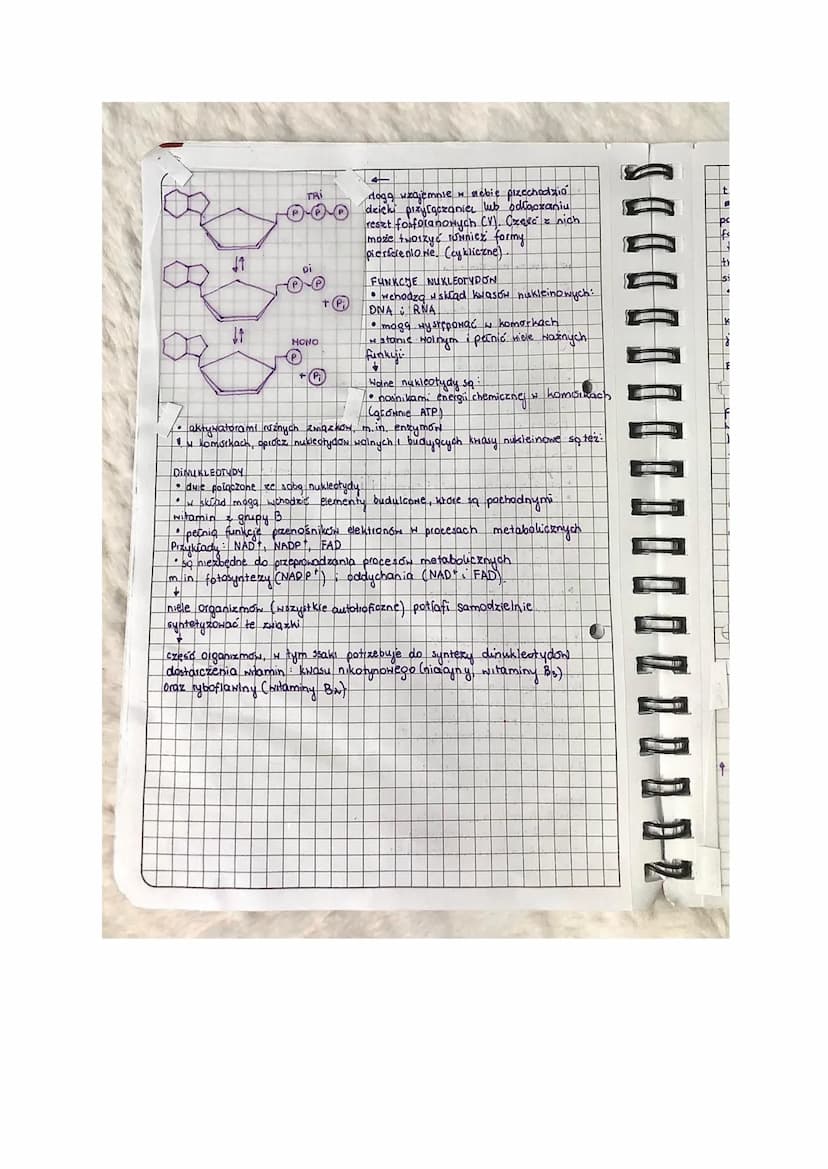 TRI
P P P
DI
P P
+ Pi
MONO
P
+ Pi
←
Mogą wzajemnie w siebie przechodzić
dzięki przyłączaniu lub odłączaniu
reszt fosforanowych (V). Część z nich
może tworzyć również formy
pierścieniowe. (cykliczne).
FUNKCJE NUKLEOTYDÓW
• wchodzą w skład kwasów nukleinowych:
DNA i RNA
• mogą występować w komórkach
w stanie wolnym i pełnić wiele ważnych
funkcji:
↓
Wolne nukleotydy są:
• nośnikami energii chemicznej w komórkach
(głównie ATP)
• aktywatorami różnych związków, m.in. enzymów
! w komórkach, oprócz nukleotydów wolnych i budujących kwasy nukleinowe są też:
DINUKLEOTYDY
• dwie połączone ze sobą nukleotydy
• w skład mogą wchodzić elementy budulcowe, które są pochodnymi
witamin z grupy B
• pełnią funkcję przenośników elektronów w procesach metabolicznych
Przykłady: NAD⁺, NADP⁺, FAD
• są niezbędne do przeprowadzania procesów metabolicznych
m.in. fotosyntezy (NADP⁺) i oddychania (NAD⁺ i FAD).
↓
wiele organizmów (wszystkie autotroficzne) potrafi samodzielnie
syntetyzować te związki
↓
część organizmów, w tym ssaki potrzebuje do syntezy dinukleotydów
dostarczenia witamin: kwasu nikotynowego (niacyny, witaminy B₃)
oraz ryboflawiny (witaminy B₂)